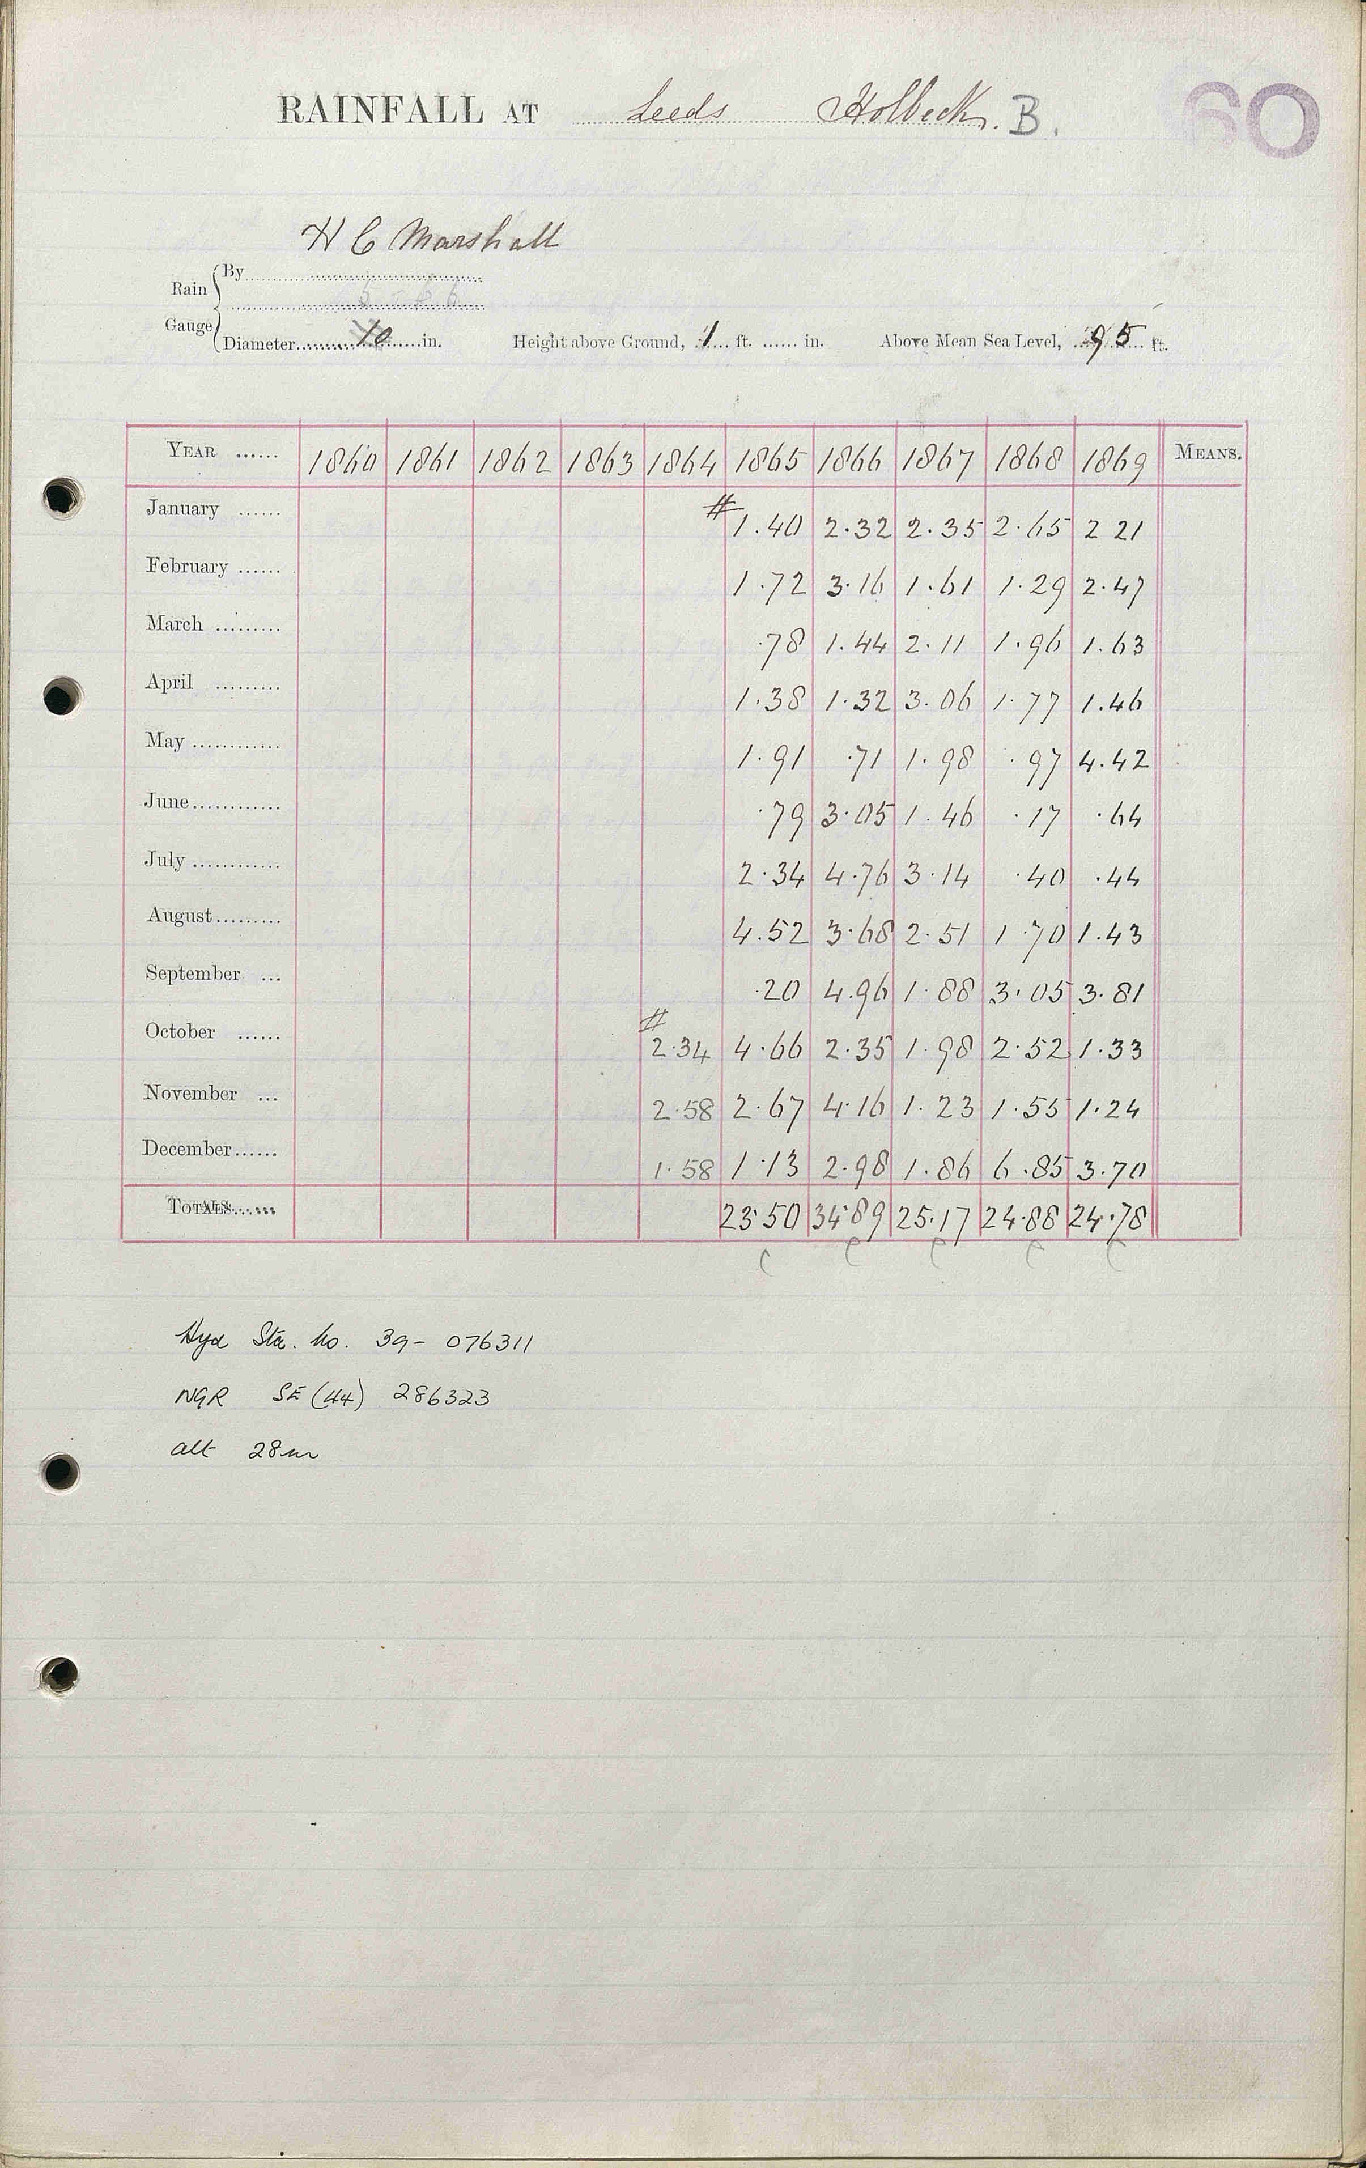 60
RAINFALL AT Leeds Holbeck. B.
H C Marshall
Rain Gauge
By
Diameter 10 in. Height above Ground, 1 ft. ...... in. Above Mean Sea Level, 95 ft.
YEAR ...... 1860 1861 1862 1863 1864 1865 1866 1867 1868 1869 MEANS.
January ...... # 1.40 2.32 2.35 2.65 2 21
February ...... 1.72 3.16 1.61 1.29 2.47
March ......... .78 1.44 2.11 1.96 1.63
April ......... 1.38 1.32 3.06 1.77 1.46
May ............ 1.91 .71 1.98 .97 4.42
June ............ .79 3.05 1.46 .17 .64
July ............ 2.34 4.76 3.14 .40 .44
August ......... 4.52 3.68 2.51 1.70 1.43
September ... .20 4.96 1.88 3.05 3.81
October ...... # 2.34 4.66 2.35 1.98 2.52 1.33
November ... 2.58 2.67 4.16 1.23 1.55 1.24
December ...... 1.58 1.13 2.98 1.86 6.85 3.70
TOTALS ...... 23.50 34.89 25.17 24.88 24.78
Hyd Sta. No. 39- 076311
NGR SE (44) 286323
alt 28m